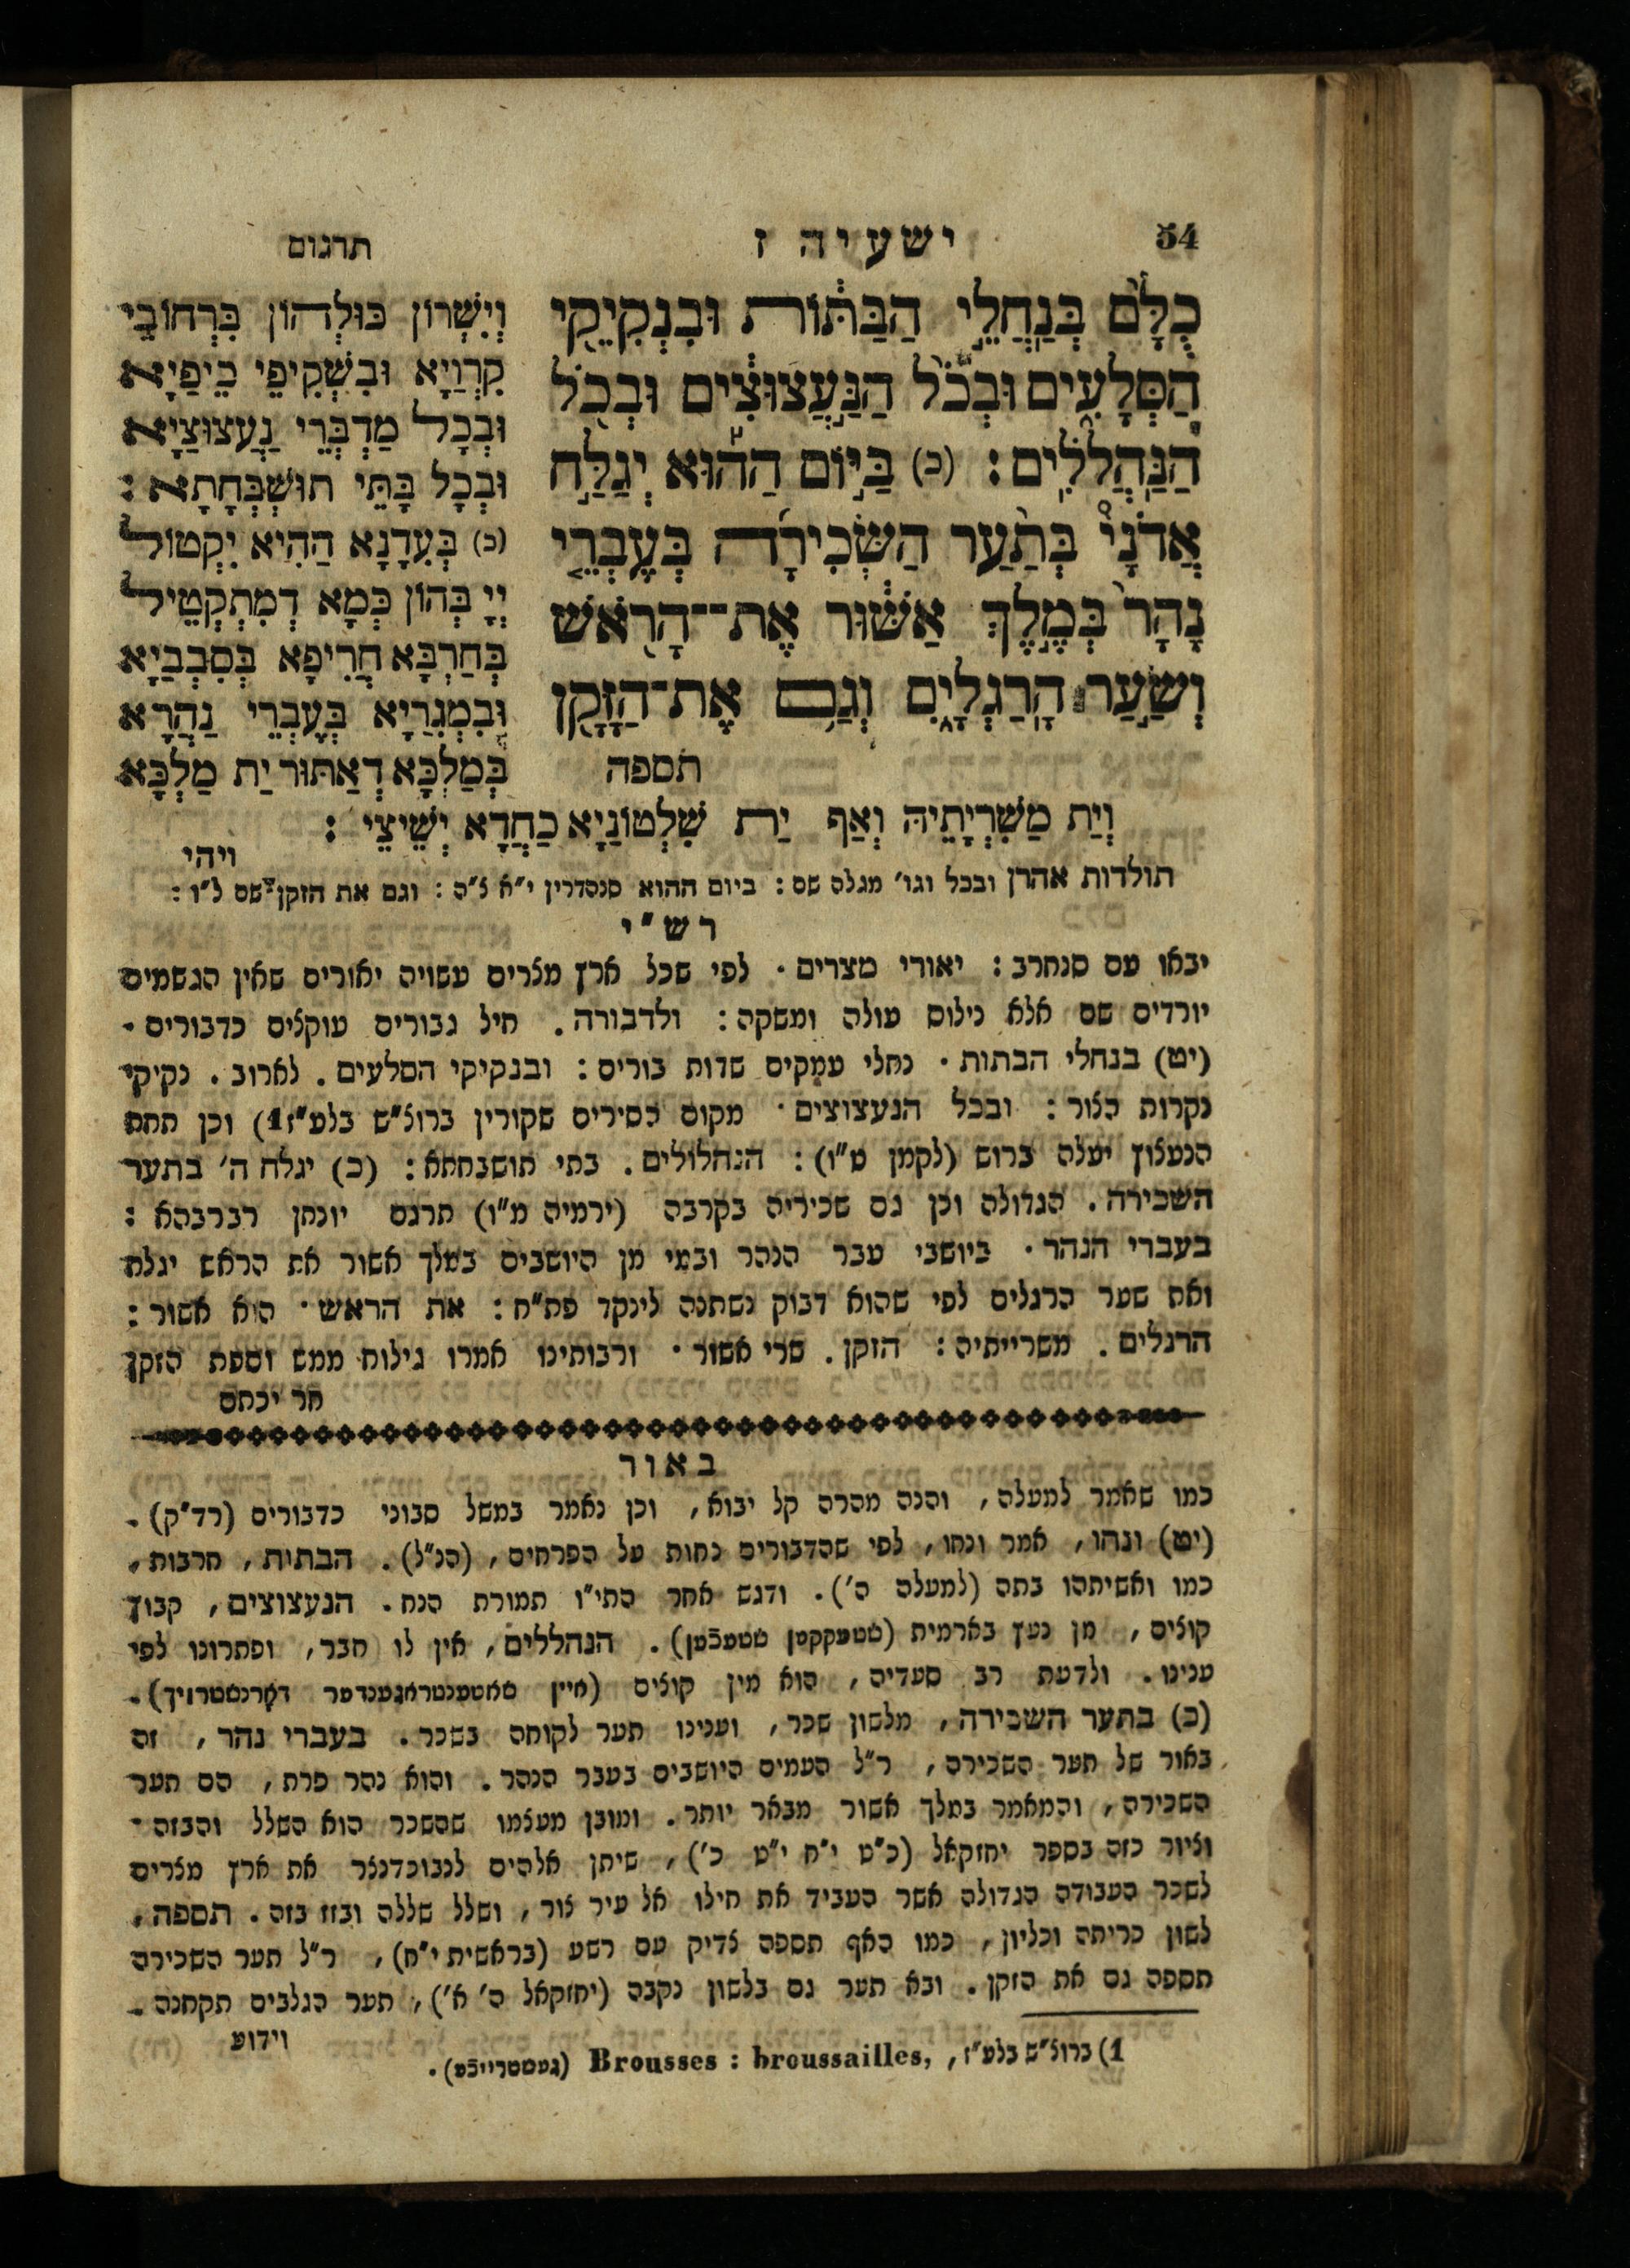 54
ישעיה ז
תרגום
כֻּלָּ֞ם בְּנַחֲלֵ֣י הַבַּתּ֗וֹת וּבִנְקִיקֵי֙
הַסְּלָעִ֔ים וּבְכֹל֙ הַנַּ֣עֲצוּצִ֔ים וּבְכֹ֖ל
הַנַּהֲלֹלִֽים׃ (כ) בַּיּ֣וֹם הַה֡וּא יְגַלַּ֣ח
אֲדֹנָי֩ בְּתַ֨עַר הַשְּׂכִירָ֜ה בְּעֶבְרֵ֤י
נָהָר֙ בְּמֶ֣לֶךְ אַשּׁ֔וּר אֶת־הָרֹ֖אשׁ
וְשַׂ֣עַר הָרַגְלָ֑יִם וְגַ֥ם אֶת־הַזָּקָ֖ן
תספה
וְיִשְׁרוֹן כּוּלְהוֹן בִּרְחוֹבֵי
קִרְוַיָא וּבִשְׁקִיפֵי כֵיפַיָא
וּבְכָל מַדְבְּרֵי נַעֲצוּצַיָא
וּבְכָל בָּתֵּי תוּשְׁבְּחָתָא׃
(כ) בְּעִדָנָא הַהִיא יִקְטוֹל
יְיָ בְּהוֹן כְּמָא דְמִתְקְטֵיל
בְּחַרְבָּא חֲרִיפָא בְּסִבְבַיָא
וּבְמְגֵרַיָא בְּעֶבְרֵי נַהֲרָא
בְּמַלְכָּא דְאַתּוּר יַת מַלְכָּא
וְיַת מַשִׁרְיָתֵיהּ וְאַף יַת שִׁלְטוֹנַיָא כַּחֲדָא יְשֵׁיצֵי׃
ויהי
תולדות אהרן ובכל וגו' מגלה שם: ביום ההוא סנהדרין י"א ל"ה: וגם את הזקן שם ל"ו:
רש"י
יבאו עם סנחרב: יאורי מצרים. לפי שכל ארץ מצרים עשויה יאורים שאין הגשמים
יורדים שם אלא נילוס עולה ומשקה: ולדבורה. חיל גבורים עוקצים כדבורים.
(יט) בנחלי הבתות. נחלי עמקים שדות בורים: ובנקיקי הסלעים. לארוב. נקיקי
נקרות הצור: ובכל הנעצוצים. מקום הסירים שקורין ברוצ"ש בלע"ז1) וכן תחת
הנעצוץ יעלה ברוש (לקמן ט"ו): הנחלולים. בתי תושבחתא: (כ) יגלח ה' בתער
השכירה. הגדולה וכן גם שכיריה בקרבה (ירמיה מ"ו) תרגם יונתן רברבהא:
בעברי הנהר. ביושבי עבר הנהר ובמי מן היושבים במלך אשור את הראש יגלח
ואת שער הרגלים לפי שהוא דבוק נשתנה לינקד פת"ח: את הראש. הוא אשור:
הרגלים. משרייתיה: הזקן. שרי אשור. ורבותינו אמרו גילוח ממש וספת הזקן
חר יכתס
באור
כמו שאמר למעלה, והנה מהרה קל יבוא, וכן נאמר במשל סבוני כדבורים (רד"ק).
(יט) ונחו, אמר ונחו, לפי שהדבורים נחות על הפרחים, (הנ"ל). הבתות, חרבות,
כמו ואשיתהו בתה (למעלה ה'). ודגש אחר התי"ו תמורת הנח. הנעצוצים, קבוץ
קוצים, מן נעץ בארמית (שטעקקען שטעכען). הנהללים, אין לו חבר, ופתרונו לפי
ענינו. ולדעת רב סעדיה, הוא מין קוצים (איין סאטענטראגענדער דארנשטרויך).
(כ) בתער השכירה, מלשון שכר, וענינו תער לקוחה בשכר. בעברי נהר, זה
באור של תער השכירה, ר"ל העמים היושבים בעבר הנהר. והוא נהר פרת, הם תער
השכירה, והמאמר במלך אשור מבאר יותר. ומובן מעצמו שהשכר הוא השלל והבזה.
וציור כזה בספר יחזקאל (כ"ט י"ח י"ט כ'), שיתן אלהים לנבוכדנצר את ארץ מצרים
לשכר העבודה הגדולה אשר העביד את חילו אל עיר צור, ושלל שללה ובזז בזה. תספה,
לשון כריתה וכליון, כמו האף תספה צדיק עם רשע (בראשית י"ח), ר"ל תער השכירה
תספה גם את הזקן. ובא תער גם בלשון נקבה (יחזקאל ה' א'), תער הגלבים תקחנה.
וידוע
1) ברוצ"ש בלע"ז, Brousses : broussailles, (געשטרייכע).